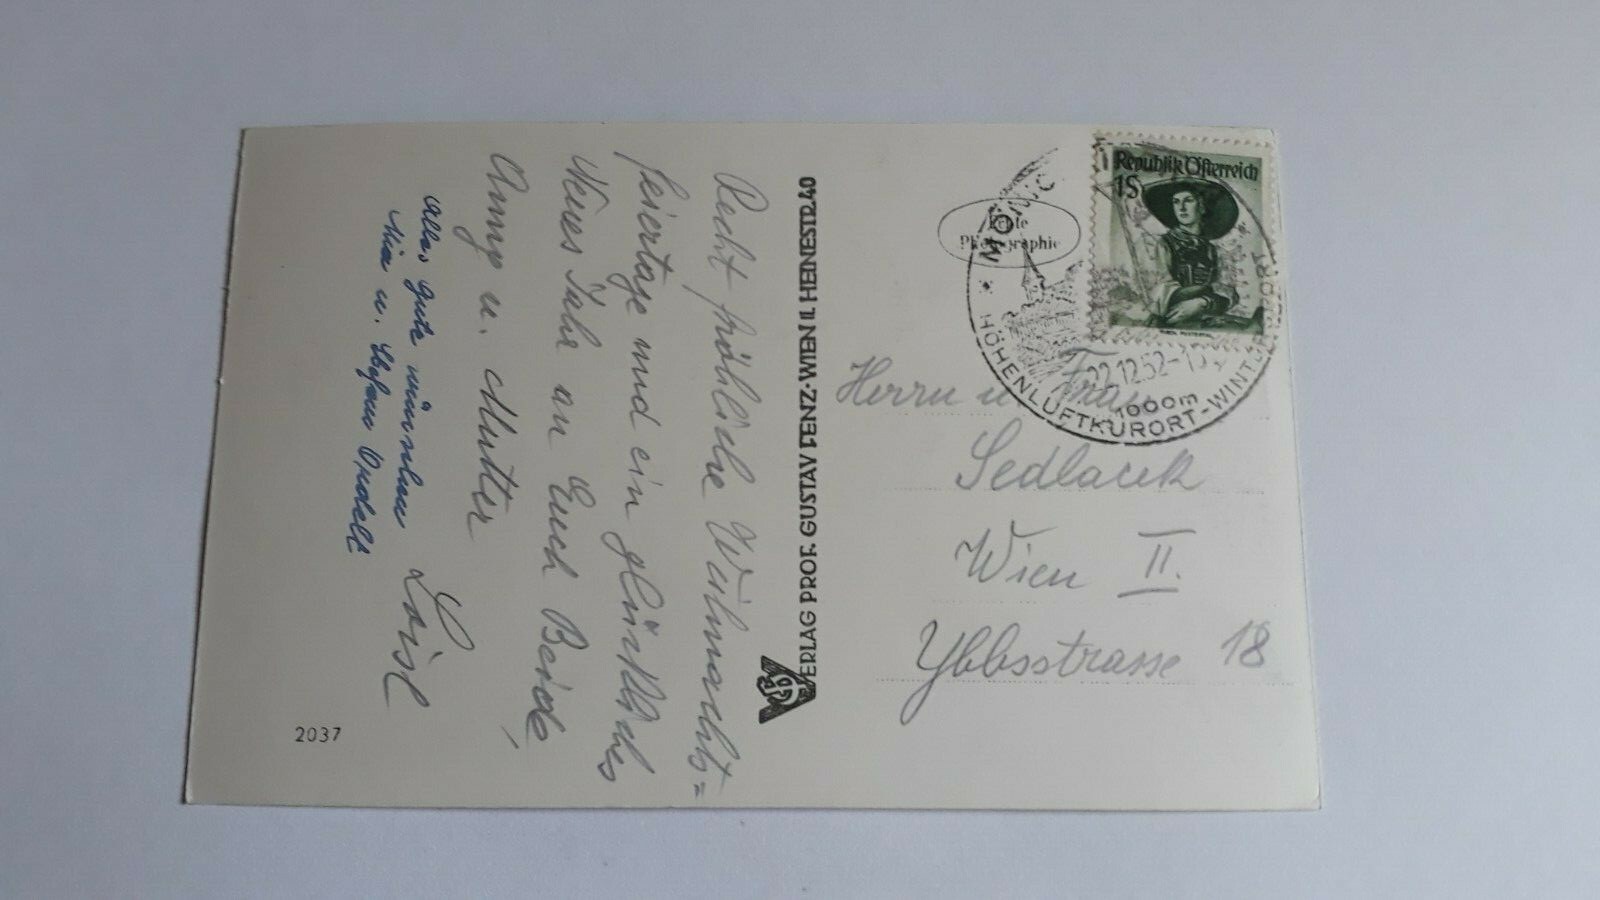 Recht fröhliche Weihnachts=
feiertage und ein glückliches
Neues Jahr an Euch Beide,
u. Mutter
Loisl
Alles gute wünschen
u. Stefan
VERLAG PROF. GUSTAV FENZ·WIEN II. HEINESTR. 40
2037
Echte
Photographie
Republik Österreich
1S
* MÖNIC
HÖHENLUFTKURORT-WINTER
22.12.52
1000m
Herrn u. Frau
Sedlacek
Wien II.
Ybbsstrasse 18